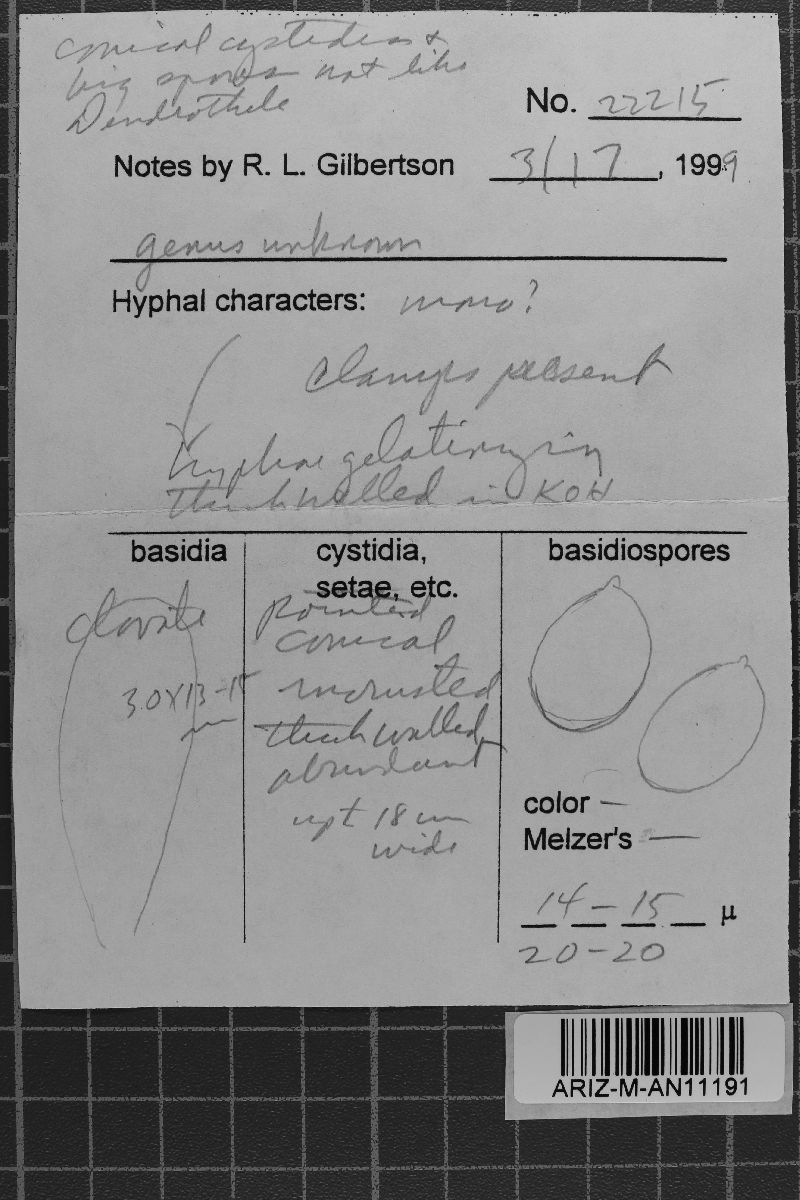 conical cystidia &
big spores not like
Dendrothele
No. 22215
Notes by R. L. Gilbertson 3/17, 1999
genus unknown
Hyphal characters: mono?
clamps present
hyphae gelatinizing
thick walled in KOH
basidia
cystidia,
setae, etc.
basidiospores
clavate
30x13-15
pointed
conical
incrusted
thick walled
abundant
upt 18 um
wide
color —
Melzer's —
14 - 15 µ
20-20
ARIZ-M-AN11191